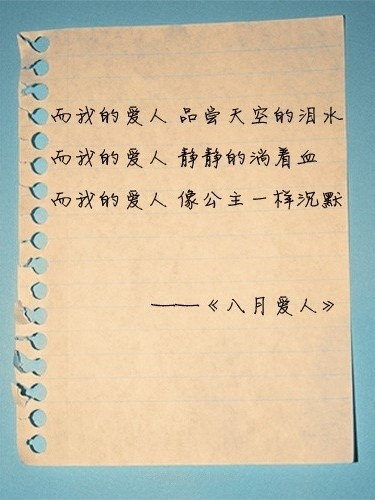 而我的爱人 品尝天空的泪水
而我的爱人 静静的淌着血
而我的爱人 像公主一样沉默
——《八月爱人》